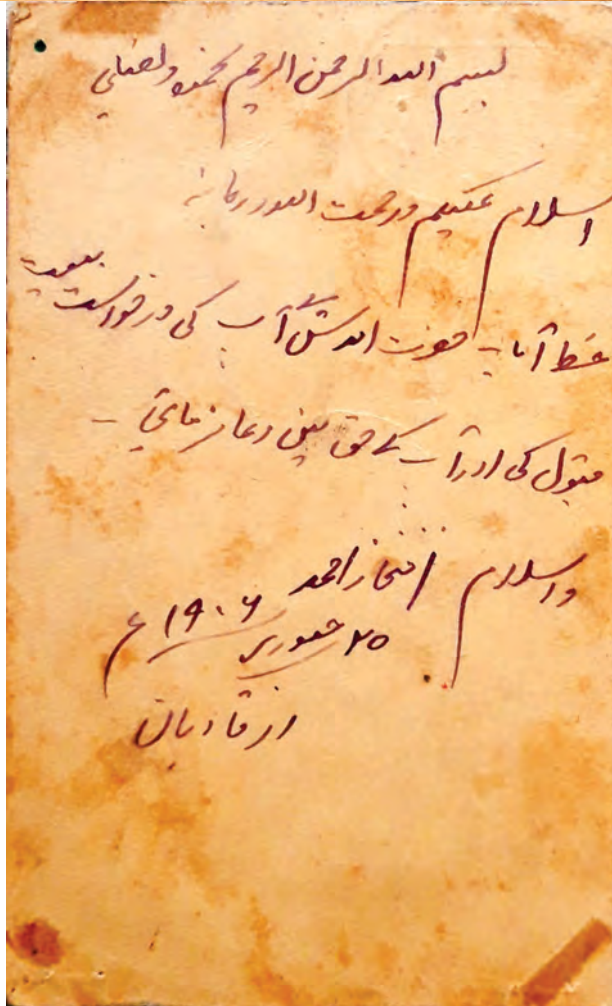 بسم اللہ الرحمن الرحیم نحمدہ ونصلی
اسلام علیکم ورحمت اللہ وبرکاتہ
خط آیا۔ حضرت اقدس نے آپ کی درخواست بیعت
قبول کی اور آپ کے حق میں دعا فرمائی۔
واسلام افتخار احمد
۲۵ جنوری ۱۹۰۶ء
از قادیان